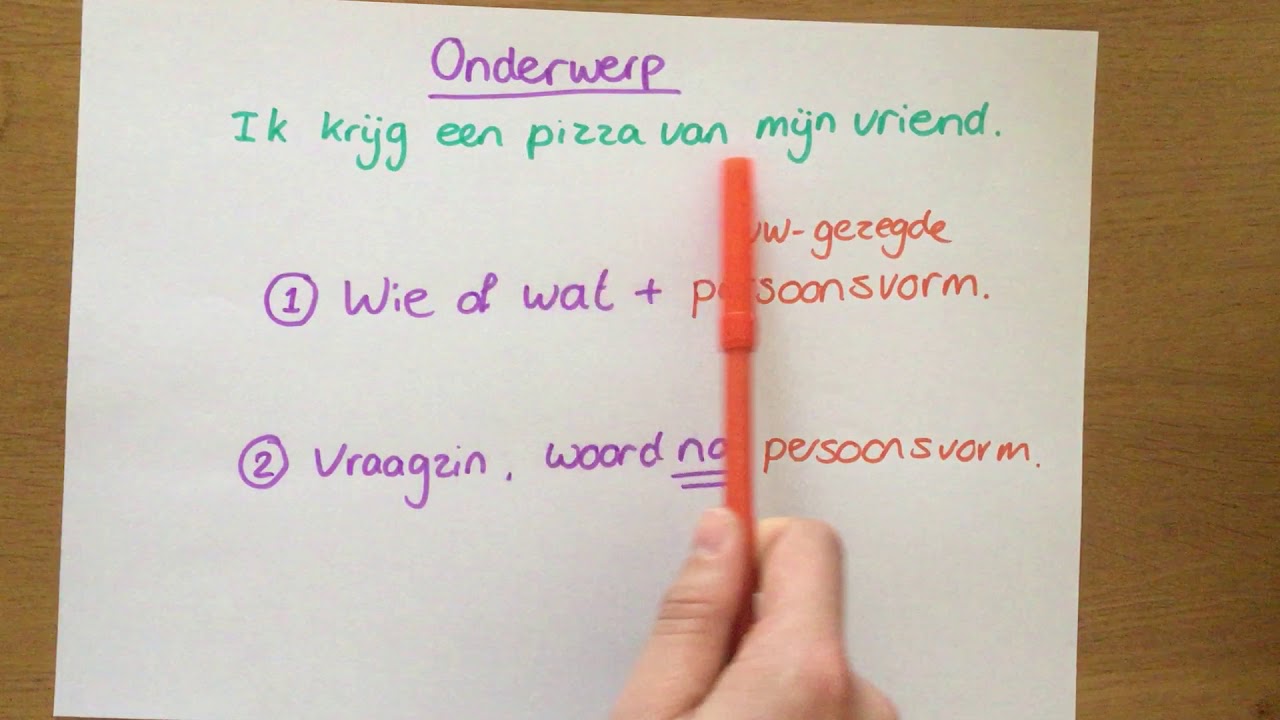 Onderwerp
Ik krijg een pizza van mijn vriend.
gezegde
① Wie of wat + persoonsvorm.
② Vraagzin, woord na persoonsvorm.